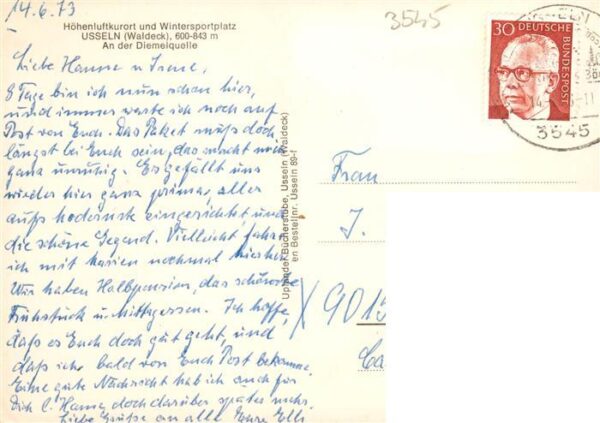 14.6.73
Höhenluftkurort und Wintersportplatz
USSELN (Waldeck), 600-843 m
An der Diemelquelle
Liebe Hanne u. Irene,
8 Tage bin ich nun schon hier,
und immer warte ich noch auf
Post von Euch. Das Paket muß doch
längst bei Euch sein, das macht mich
ganz unruhig. Es gefällt uns
wieder hier ganz prima, alles
aufs modernste eingerichtet, und
die schöne Gegend. Vielleicht fahre
ich mit nochmal hierher
Wir haben Halbpension, das schönste
Frühstück u. Mittagessen. Ich hoffe,
daß es Euch doch gut geht, und
daß ich bald von Euch Post bekomme.
Eine gute Nachricht hab ich auch für
Dich l. Hanne, doch darüber später mehr.
Liebe Grüße an alle Eure Elli
Upländer Bücherstube, Usseln (Waldeck)
en Bestellnr. Usseln 89-f
3545
30 DEUTSCHE BUNDESPOST
3545
Frau
I.
X 9015